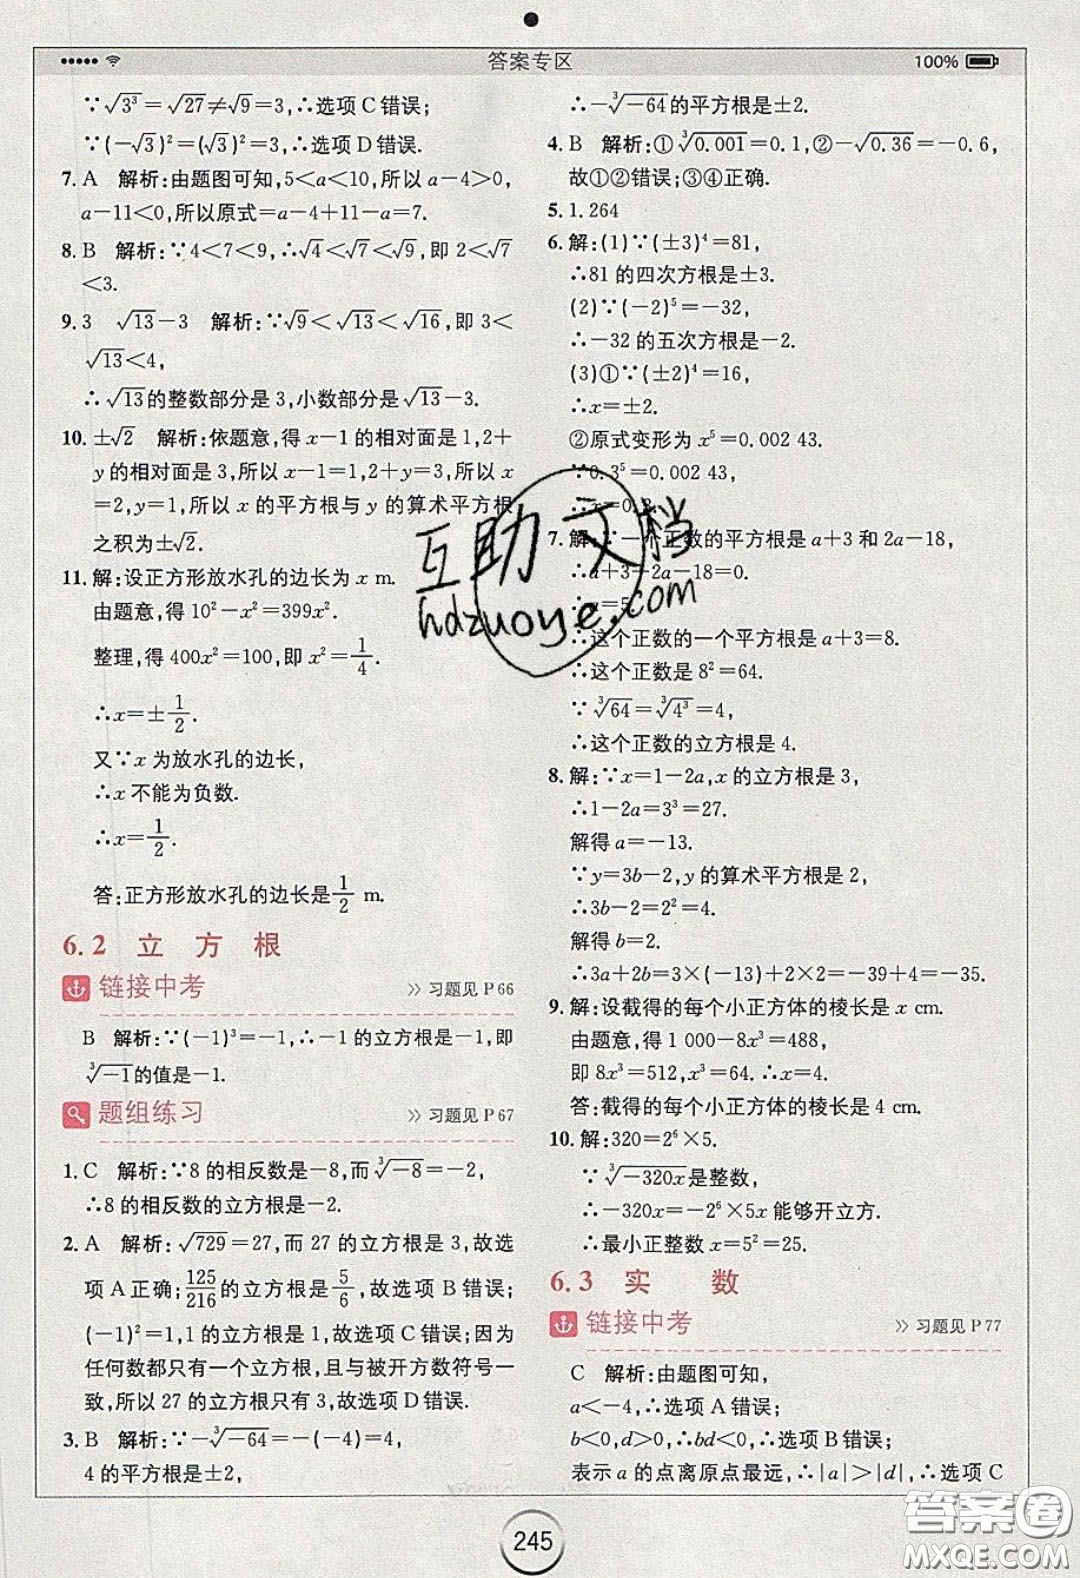 答案专区
100%
∵√3³=√27≠√9=3,∴选项C错误;
∵(-√3)²=(√3)²=3,∴选项D错误.
7. A 解析:由题图可知,5<a<10,所以a-4>0,
a-11<0,所以原式=a-4+11-a=7.
8. B 解析:∵4<7<9,∴√4<√7<√9,即2<√7
<3.
9. 3 √13-3 解析:∵√9<√13<√16,即3<
√13<4,
∴√13的整数部分是3,小数部分是√13-3.
10. ±√2 解析:依题意,得x-1的相对面是1,2+
y的相对面是3,所以x-1=1,2+y=3,所以x
=2,y=1,所以x的平方根与y的算术平方根
之积为±√2.
11. 解:设正方形放水孔的边长为x m.
由题意,得10²-x²=399x².
整理,得400x²=100,即x²=1/4.
∴x=±1/2.
又∵x为放水孔的边长,
∴x不能为负数.
∴x=1/2.
答:正方形放水孔的边长是1/2 m.
6.2 立方根
链接中考
>> 习题见P66
B 解析:∵(-1)³=-1,∴-1的立方根是-1,即
∛-1的值是-1.
题组练习
>> 习题见P67
1. C 解析:∵8的相反数是-8,而∛-8=-2,
∴8的相反数的立方根是-2.
2. A 解析:√729=27,而27的立方根是3,故选
项A正确;125/216的立方根是5/6,故选项B错误;
(-1)²=1,1的立方根是1,故选项C错误;因为
任何数都只有一个立方根,且与被开方数符号一
致,所以27的立方根只有3,故选项D错误.
3. B 解析:∵-∛-64=-(-4)=4,
4的平方根是±2,
∴-∛-64的平方根是±2.
4. B 解析:①∛0.001=0.1,②-√0.36=-0.6,
故①②错误;③④正确.
5. 1.264
6. 解:(1)∵(±3)⁴=81,
∴81的四次方根是±3.
(2)∵(-2)⁵=-32,
∴-32的五次方根是-2.
(3)①∵(±2)⁴=16,
∴x=±2.
②原式变形为x⁵=0.002 43.
∵0.3⁵=0.002 43,
∴x=0.3.
7. 解:∵一个正数的平方根是a+3和2a-18,
∴a+3+2a-18=0.
∴a=5.
∴这个正数的一个平方根是a+3=8.
∴这个正数是8²=64.
∵∛64=∛4³=4,
∴这个正数的立方根是4.
8. 解:∵x=1-2a,x的立方根是3,
∴1-2a=3³=27.
解得a=-13.
∵y=3b-2,y的算术平方根是2,
∴3b-2=2²=4.
解得b=2.
∴3a+2b=3×(-13)+2×2=-39+4=-35.
9. 解:设截得的每个小正方体的棱长是x cm.
由题意,得1 000-8x³=488,
即8x³=512,x³=64.∴x=4.
答:截得的每个小正方体的棱长是4 cm.
10. 解:320=2⁶×5.
∵∛-320x是整数,
∴-320x=-2⁶×5x能够开立方.
∴最小正整数x=5²=25.
6.3 实数
链接中考
>> 习题见P77
C 解析:由题图可知,
a<-4,∴选项A错误;
b<0,d>0,∴bd<0,∴选项B错误;
表示a的点离原点最远,∴|a|>|d|,∴选项C
245
互助文档
hdzuoye.com
答案圈
MXQE.COM